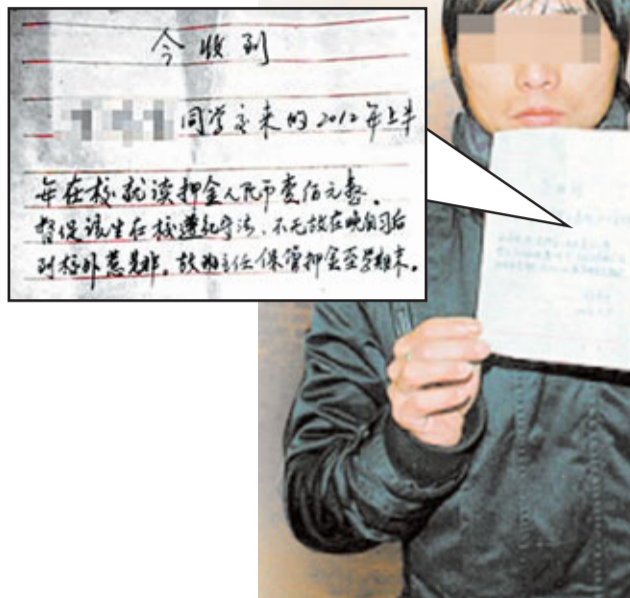 今收到
同学交来的2012年上半
年在校就读押金人民币壹佰元整。
督促该生在校遵纪守法、不无故在晚自习后
到校外惹是非。故班主任保管押金至学期末。